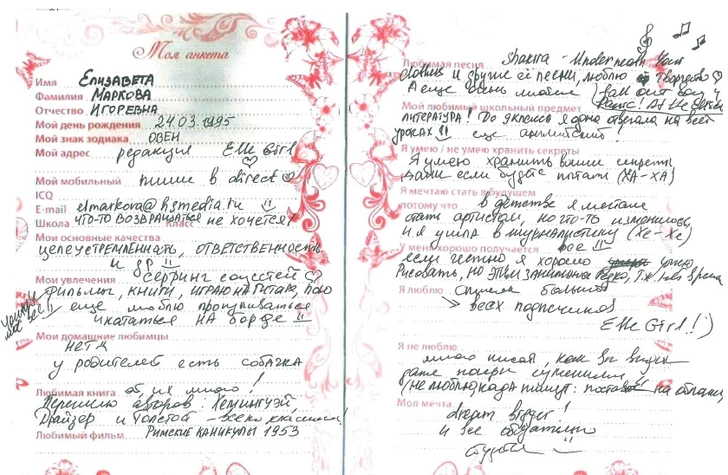 Моя анкета
Имя ЕЛИЗАВЕТА
Фамилия МАРКОВА
Отчество ИГОРЕВНА
Мой день рождения 24.03.1995
Мой знак зодиака ОВЕН
Мой адрес редакция Elle Girl
Мой мобильный пиши в direct
ICQ
E-mail elmarkova@hsmedia.ru
Школа что-то возвращаться Класс не хочется
Мои основные качества
целеустремленность, ответственность
и др
Мои увлечения сёрфинг соцсетей
фильмы, книги, играю на гитаре, пою
еще люблю прогуливаться
и кататься на борде
Мои домашние любимцы
нет
у родителей есть собачка
Любимая книга ой, их много!
Перечислю авторов: Хемингуэй
Драйзер и Толстой - всеми классика!
Любимый фильм РИМСКИЕ КАНИКУЛЫ 1953
Любимая песня Shakira - Underneath Your
Clothes и другие её песни, люблю её творчество
А еще очень люблю Fall Out Boy и
Мой любимый школьный предмет Panic! At the Disco
ЛИТЕРАТУРА! До экзамена я одна отвечала на всех
уроках еще английский.
Я умею / не умею хранить секреты
Я умею хранить ваши секреты
даже если будете пытать (ХА-ХА)
Я мечтаю стать в будущем
потому что в детстве я мечтала
стать артистом, но что-то изменилось
и я ушла в журналистику (Хе-Хе)
У меня хорошо получается все
если честно я хорошо умею
Рисовать, но этим занимаюсь редко, т.к. нет времени
Я люблю
всех подписчиков
Elle Girl!:)
Я не люблю
много писать, как вы видите
даже почерк
(не люблю) когда пишут:
Моя мечта
dream big!
и все обязательно
сбудется